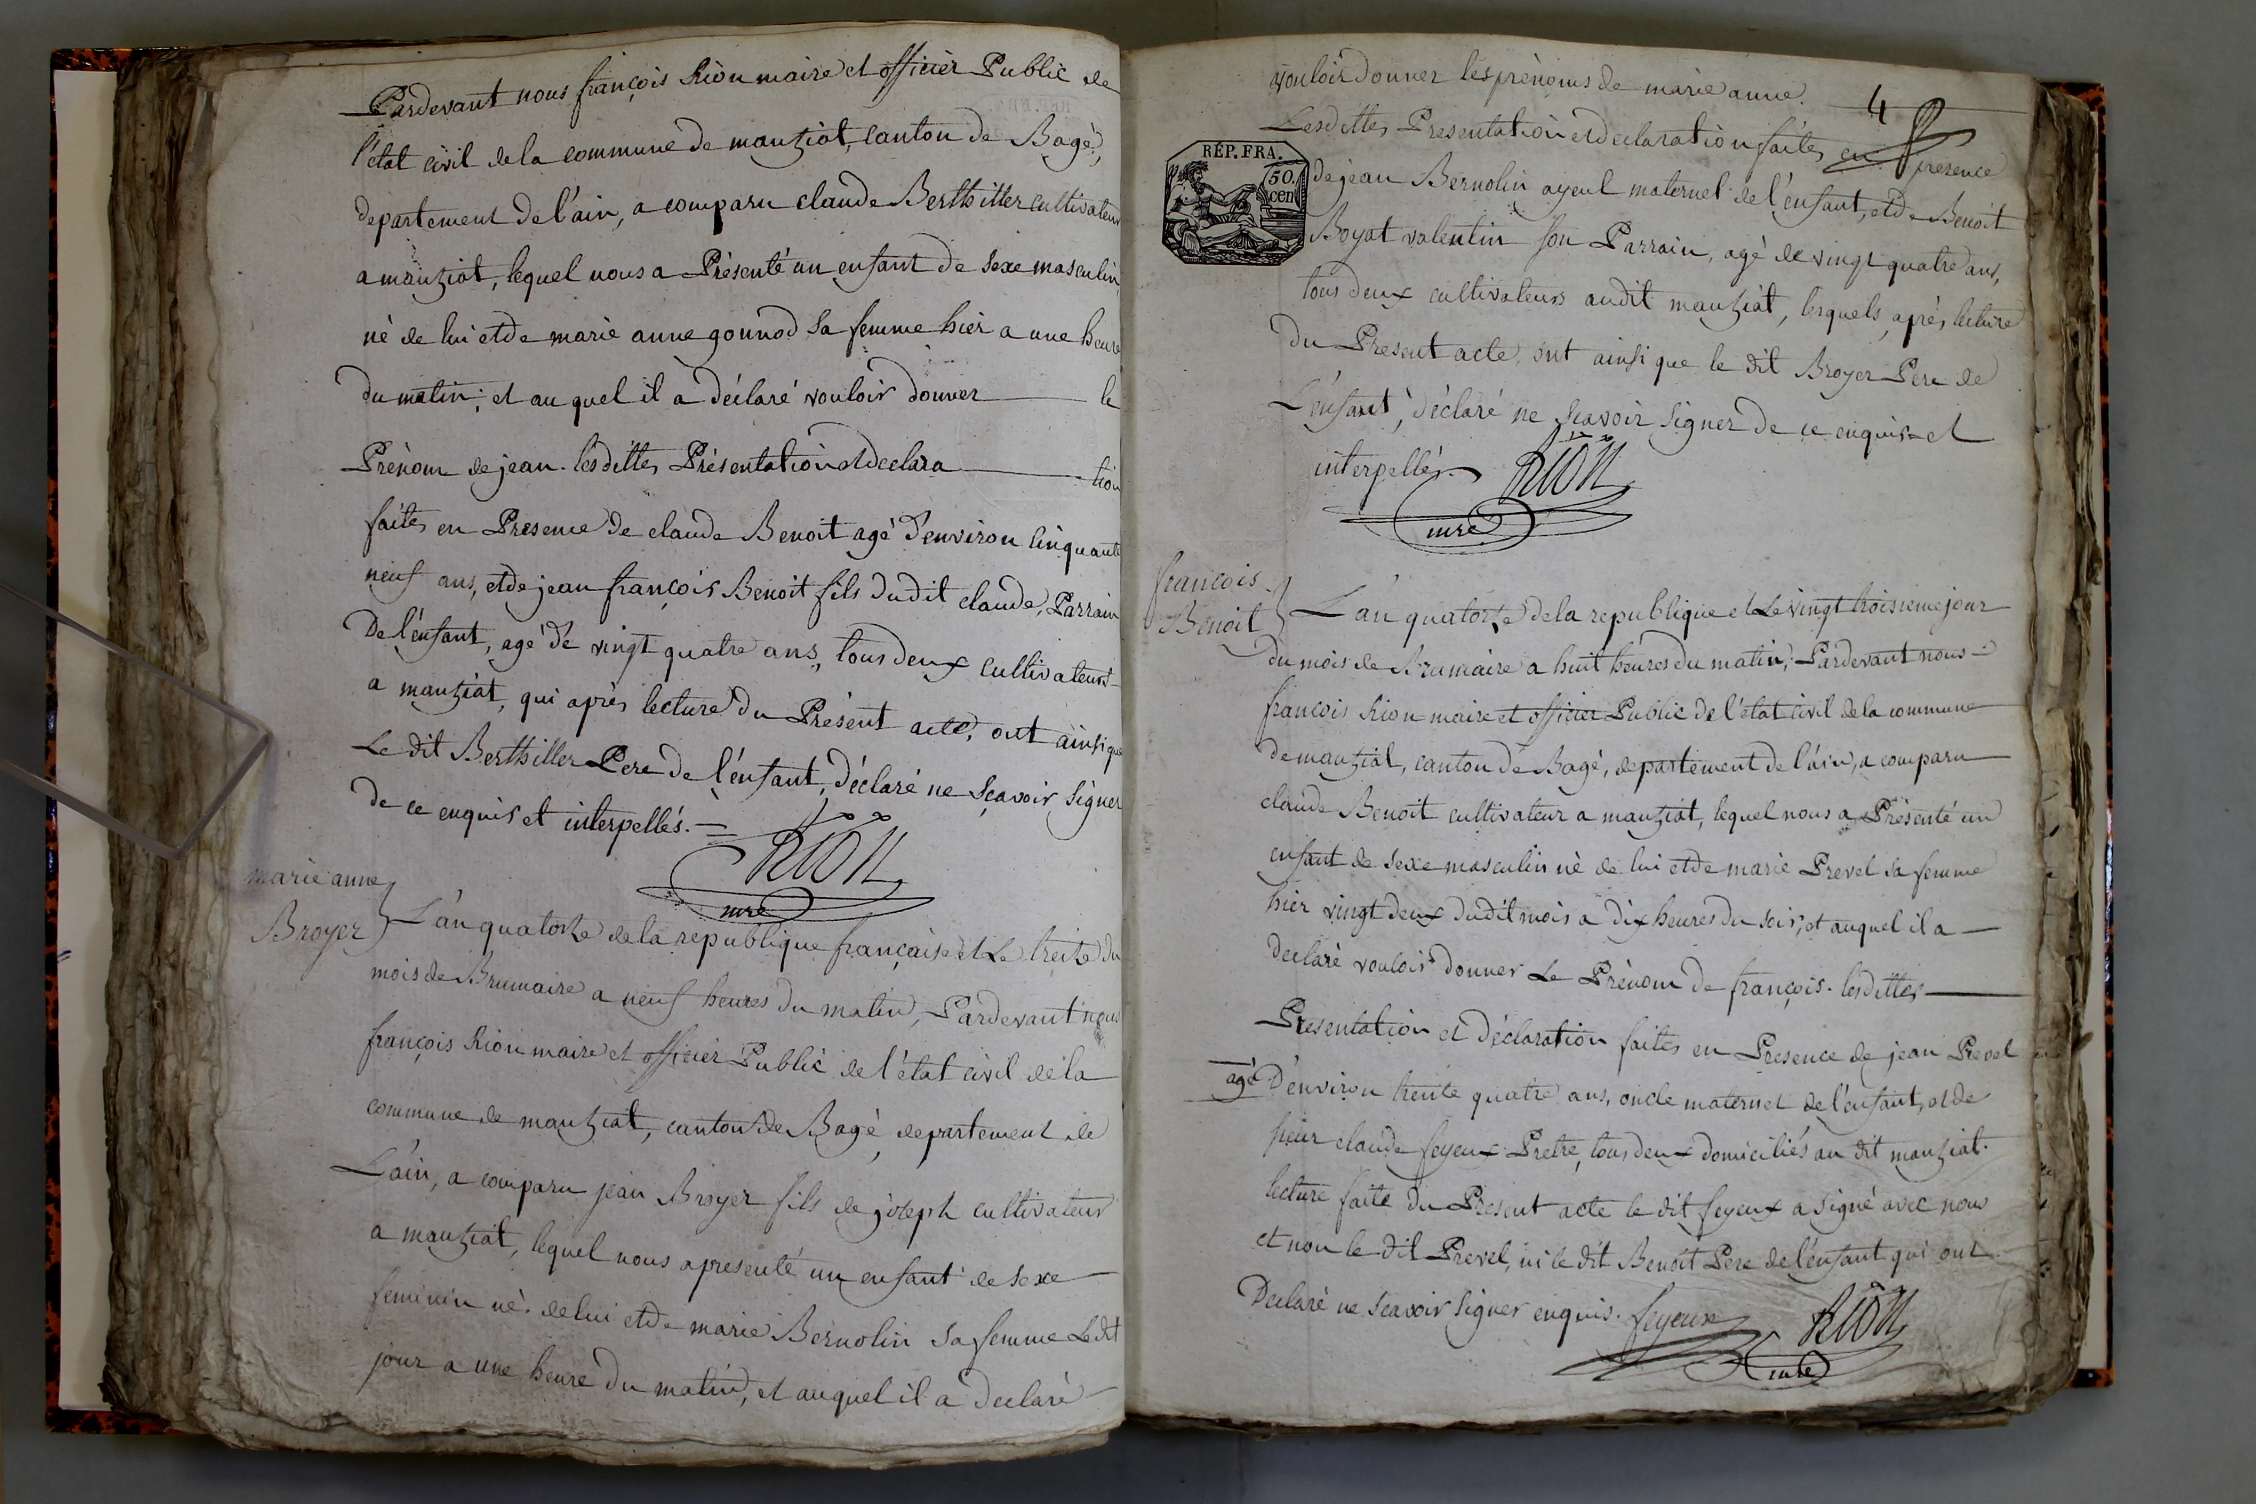 Pardevant nous françois Rion maire et officier Public de
l'état civil de la commune de manziat, canton de Bagé,
departement de l'ain, a comparu claude Berthiller cultivateur
a manziat, lequel nous a Présenté un enfant de sexe masculin,
né de lui et de marie anne gonnod sa femme hier a une heure
du matin; et auquel il a déclaré vouloir donner le
Prénom de jean. lesdittes Présentation et declara tion
faites en Presence de claude Benoit agé d'environ cinquante
neuf ans, et de jean françois Benoit fils dudit claude, Parrain
De l'enfant, agé de vingt quatre ans, tous deux cultivateurs
a manziat, qui après lecture du Présent acte, ont ainsi que
Le dit Berthiller Pere de l'enfant, déclaré ne sçavoir signer
de ce enquis et interpellés.
RION
mre
marie anne
Broyer
L'an quatorze de la republique française et Le treize du
mois de Brumaire a neuf heures du matin, Pardevant nous
françois Rion maire et officier Public de l'état civil de la
commune de manziat, canton de Bagé, departement de
L'ain, a comparu jean Broyer fils de joseph cultivateur
a manziat, lequel nous a presenté un enfant de sexe
feminin né de lui et de marie Bernolin sa femme Ledit
jour a une heure du matin, et auquel il a declaré
4
vouloir donner les prénoms de marie anne.
Lesdittes Presentation et declaration faites en presence
RÉP. FRA.
50.
cen
de jean Bernolin ayeul maternel de l'enfant, et de Benoit
Boyat valentin son Parrain, agé de vingt quatre ans,
tous deux cultivateurs audit manziat, lesquels après lecture
du Present acte, ont ainsi que le dit Broyer Pere de
L'enfant, déclaré ne sçavoir signer de ce enquis et
interpellés.
RION
mre
françois
Benoit
L'an quatorze de la republique et Le vingt troisieme jour
du mois de Brumaire a huit heures du matin, Pardevant nous
françois Rion maire et officier Public de l'état civil de la commune
de manziat, canton de Bagé, departement de l'ain, a comparu
claude Benoit cultivateur a manziat, lequel nous a Présenté un
enfant de sexe masculin né de lui et de marie Prevel sa femme
hier vingt deux dudit mois a dix heures du soir, et auquel il a
declaré vouloir donner Le Prénom de françois. lesdittes
Presentation et déclaration faites en Presence de jean Prevel
agé
d'environ trente quatre ans, oncle maternel de l'enfant, et de
sieur claude feyeux Pretre, tous deux domiciliés au dit manziat.
lecture faite du Present acte le dit feyeux a signé avec nous
et non le dit Prevel, ni le dit Benoit Pere de l'enfant qui ont
Declaré ne sçavoir signer enquis. feyeux
RION
mre